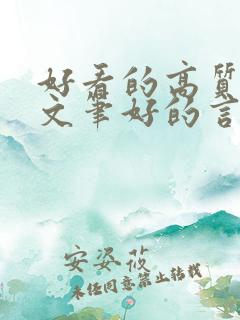 好看的高质
文笔好的言
安姿莜
未经同意禁止转载